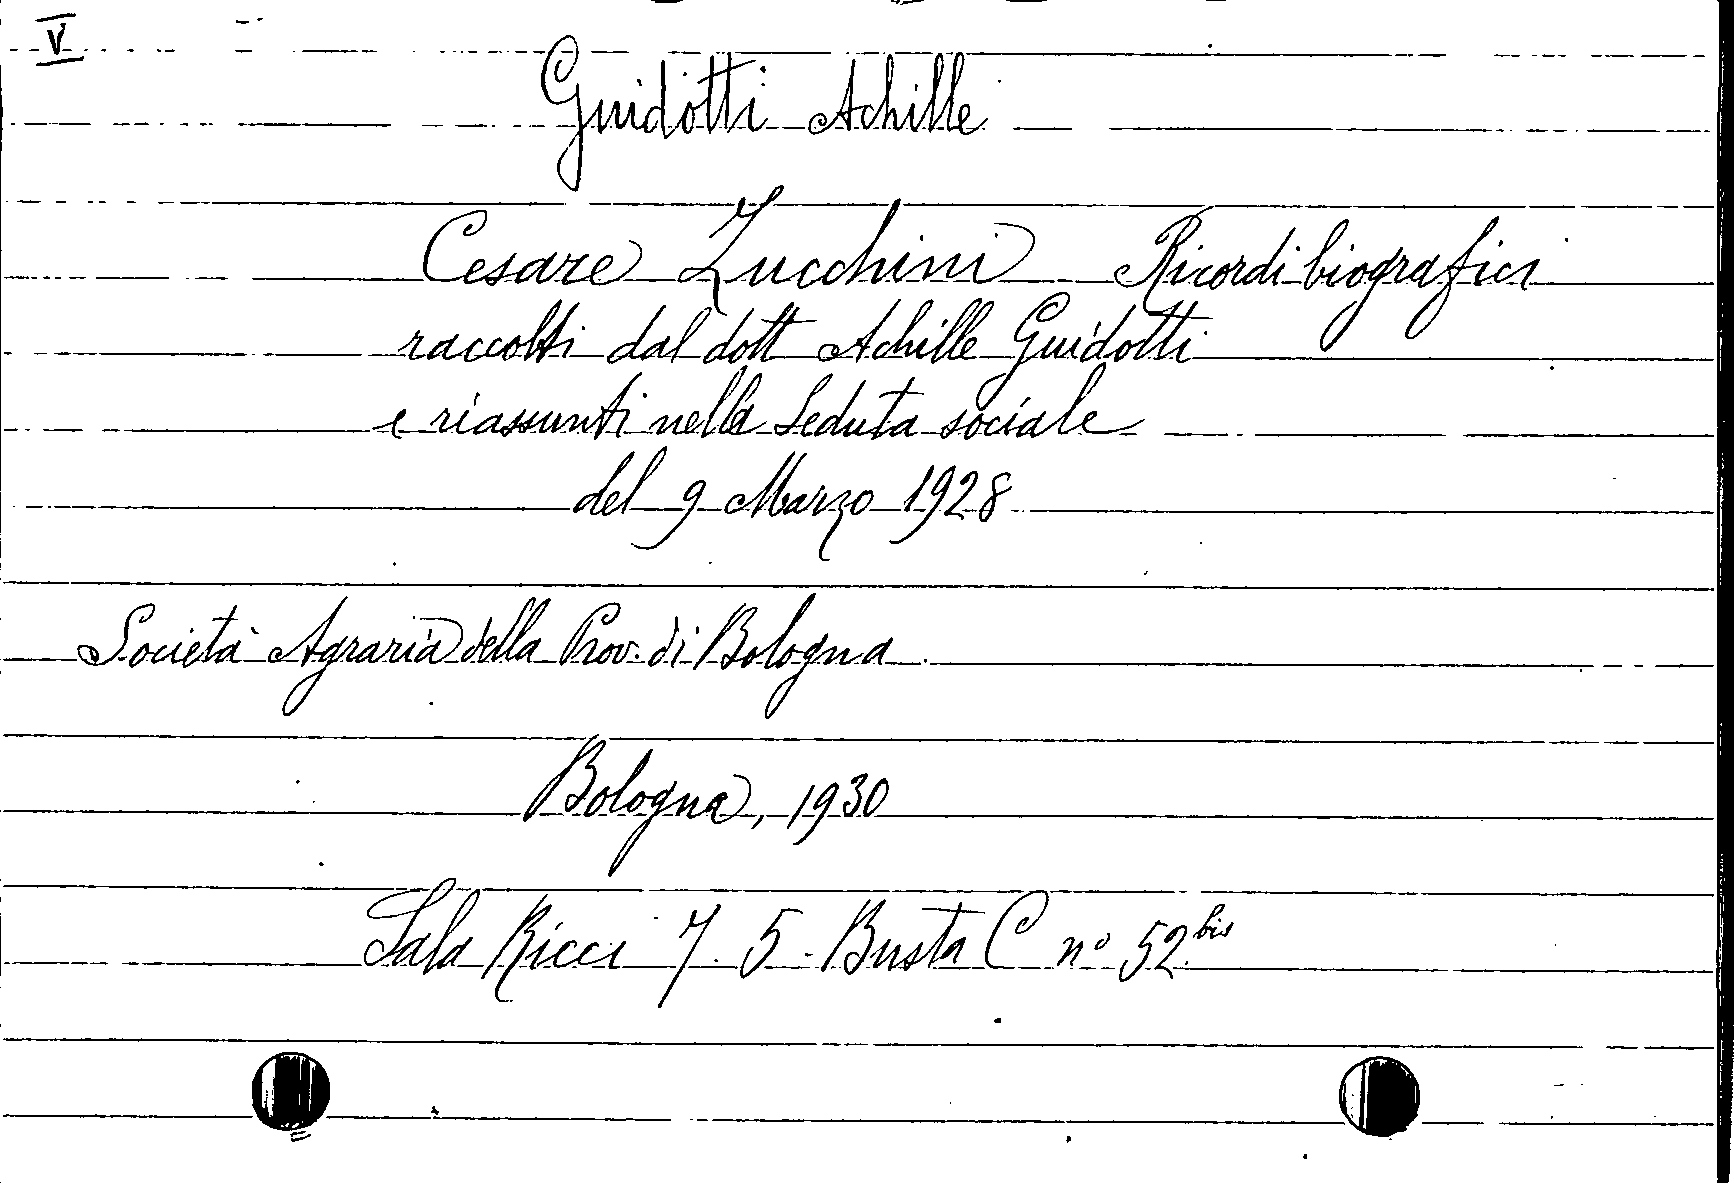 V
Guidotti Achille
Cesare Zucchini Ricordi biografici
raccolti dal dott Achille Guidotti
e riassunti nella Seduta sociale
del 9 Marzo 1928
Società Agraria della Prov. di Bologna.
Bologna, 1930
Sala Ricci 7. 5. Busta C n° 52.bis